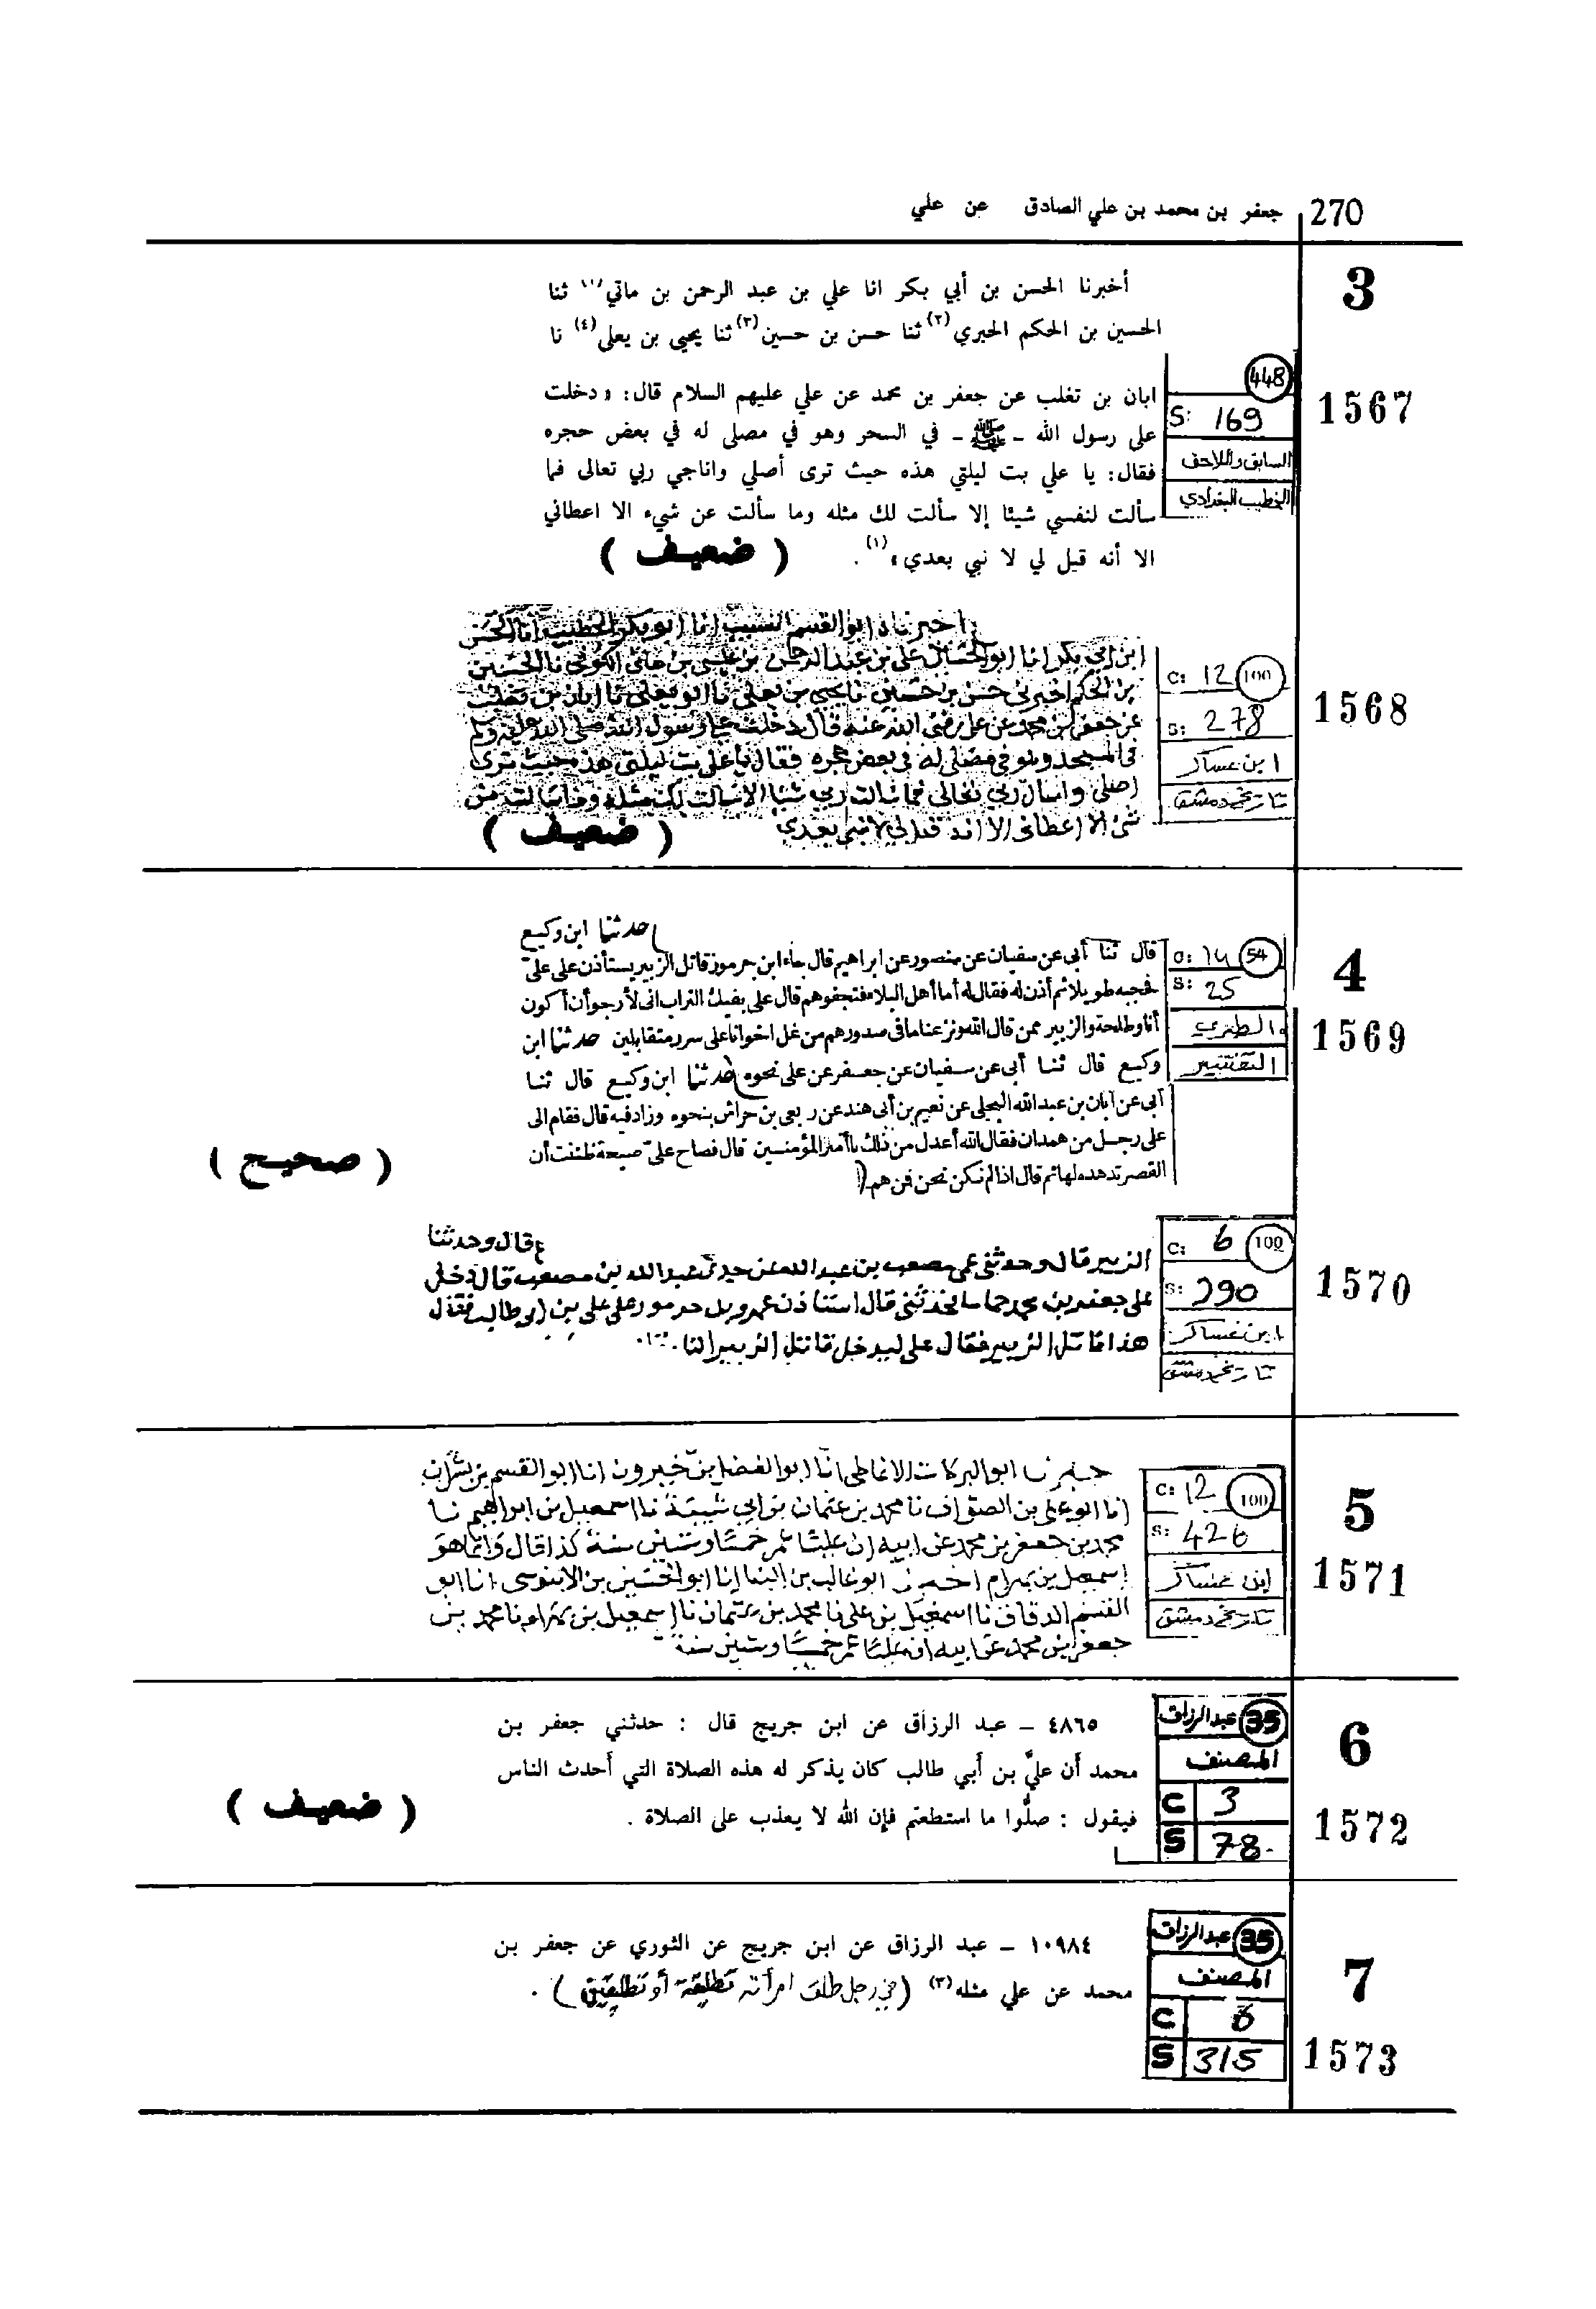 270 جعفر بن محمد بن علي الصادق عن علي
3
أخبرنا الحسن بن أبي بكر انا علي بن عبد الرحمن بن ماتي(١) ثنا
الحسين بن الحكم الحبري(٢) ثنا حسن بن حسين(٣) ثنا يحيى بن يعلى(٤) نا
1567
448
S: 169
السابق واللاحق
الخطيب البغدادي
ابان بن تغلب عن جعفر بن محمد عن علي عليهم السلام قال: «دخلت
على رسول الله - ﷺ - في السحر وهو في مصلى له في بعض حجره
فقال: يا علي بت ليلتي هذه حيث ترى أصلي واناجي ربي تعالى فما
سألت لنفسي شيئا إلا سألت لك مثله وما سألت عن شيء الا اعطاني
الا أنه قيل لي لا نبي بعدي»(١). ( ضعيف )
1568
100
C: 12
S: 278
ابن عساكر
تاريخ دمشق
اخبرناه ابو القسم النسيب انا ابو بكر الخطيب انا الحسن
ابن ابي بكر انا ابو الحسين علي بن عبد الرحمن بن عيسى بن ماتي الكوفي نا الحسين
بن الحكم اخبرني حسن بن حسين نا يحيى بن يعلى نا ابان بن تغلب
عن جعفر بن محمد عن علي رضي الله عنه قال دخلت على رسول الله صلى الله عليه وسلم
في المسجد وهو في مصلى له في بعض حجره فقال يا علي بت ليلتي هذه حيث ترى
اصلي واسال ربي تعالى فما سالت ربي شيئا الا سالت لك مثله وما سالت من
شئ الا اعطاني الا انه قيل لي لا نبي بعدي ( ضعيف )
4
1569
54
C: 14
S: 25
الطبري
التفسير
حدثنا ابن وكيع
قال ثنا أبي عن سفيان عن منصور عن ابراهيم قال جاء ابن جرموز قاتل الزبير يستأذن على علي
فحجبه طويلا ثم أذن له فقال له أما أهل البلاء فتجفوهم قال علي بفيك التراب اني لأرجو أن أكون
أنا وطلحة والزبير ممن قال الله ونزعنا ما في صدورهم من غل اخوانا على سرر متقابلين حدثنا ابن
وكيع قال ثنا أبي عن سفيان عن جعفر عن علي نحوه حدثنا ابن وكيع قال ثنا
أبي عن أبان بن عبد الله البجلي عن نعيم بن أبي هند عن ربعي بن حراش بنحوه وزاد فيه قال فقام الى
علي رجل من همدان فقال الله أعدل من ذلك يا أمير المؤمنين قال فصاح علي صيحة ظننت أن
القصر تدهده لها ثم قال اذا لم نكن نحن فمن هم
( صحيح )
1570
100
C: 6
S: 290
ابن عساكر
تاريخ دمشق
قال وحدثنا
الزبير قال وحدثني عمي مصعب بن عبد الله عن جدي عبد الله بن مصعب قال دخل
على جعفر بن محمد قال استاذن عمرو بن جرموز على علي بن ابي طالب فقال
هذا قاتل الزبير فقال علي ليدخل قاتل الزبير النار
5
1571
100
C: 12
S: 426
ابن عساكر
تاريخ دمشق
اخبرنا ابو البركات الانماطي انا ابو الفضل بن خيرون انا ابو القسم بن بشران
انا ابو علي بن الصواف نا محمد بن عثمان بن ابي شيبة نا اسمعيل بن ابراهيم نا
محمد بن جعفر بن محمد عن ابيه ان عليا عمر خمسا وستين سنة كذا قال وانما هو
اسمعيل بن بهرام اخبرنا ابو غالب بن البنا انا ابو الحسين بن الابنوسي انا ابو
القسم الدقاق نا اسمعيل بن علي نا محمد بن عثمان نا اسمعيل بن بهرام نا محمد بن
جعفر بن محمد عن ابيه ان عليا عمر خمسا وستين سنة
6
1572
35 عبدالرزاق
المصنف
C 3
S 78
٤٨٦٥ - عبد الرزاق عن ابن جريج قال : حدثني جعفر بن
محمد أن عليَّ بن أبي طالب كان يذكر له هذه الصلاة التي أحدث الناس
فيقول : صلُّوا ما استطعتم فإن الله لا يعذب على الصلاة .
( ضعيف )
7
1573
35 عبدالرزاق
المصنف
C 6
S 315
١٠٩٨٤ - عبد الرزاق عن ابن جريج عن الثوري عن جعفر بن
محمد عن علي مثله(٣) (في رجل طلق امرأته تطليقة أو تطليقتين) .